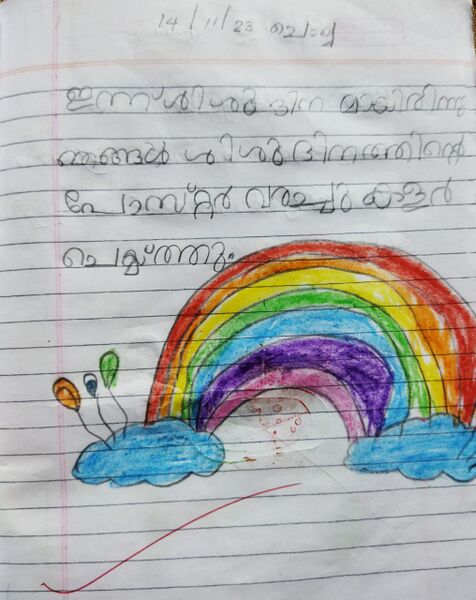 14/11/23 ചൊവ്വ
ഇന്ന് ശിശു ദിന മായിരിന്നു
ഞങ്ങൾ ശിശുദിനത്തിന്റെ
പോസ്റ്റർ വരച്ചു കളർ
ചെയ്ത്തു.